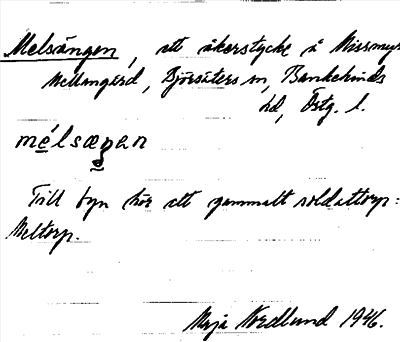 Melsängen, ett åkerstycke å Missmyr
Mellangård, Björsäters sn, Bankekinds
hd, Östg. l.
mélsæŋən
Till byn hör ett gammalt soldattorp:
Meltorp.
Maja Nordlund 1946.